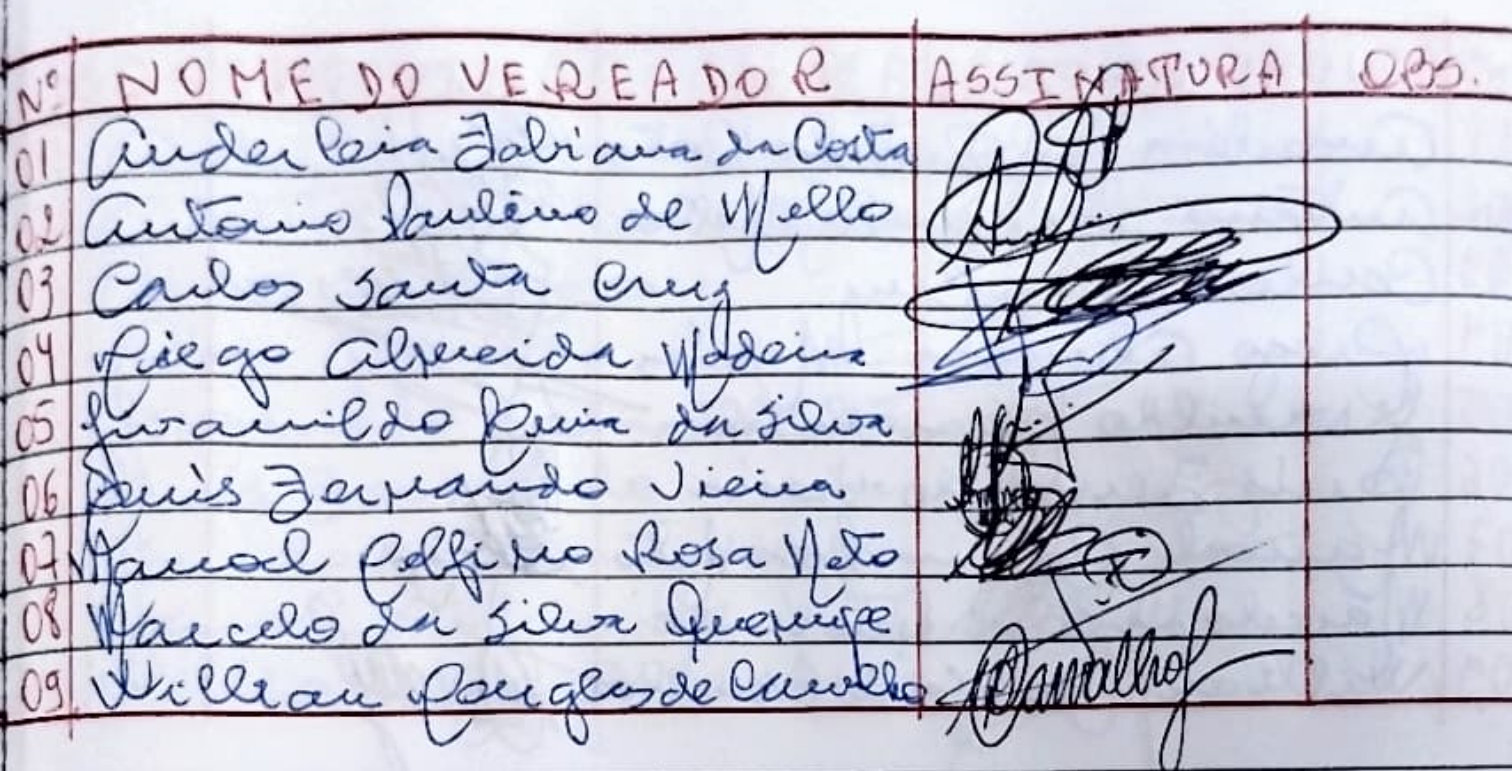 Nº NOME DO VEREADOR ASSINATURA OBS.
01 Anderleia Fabiana da Costa
02 Antonio Paulino de Mello
03 Carlos Santa Cruz
04 Diego Almeida Madeira
05 Juramildo da Silva
06 Luis Fernando Vieira
07 Manoel Delfino Rosa Neto
08 Marcelo da Silva
09 Willian Douglas de Carvalho Carvalho